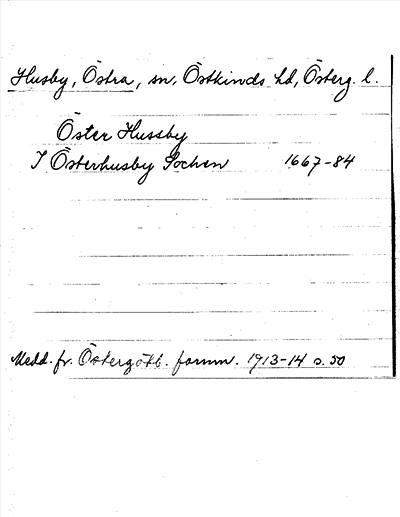 Husby, Östra, sn, Östkinds hd, Österg. l.
Öster Hussby
I Österhusby Sochen 1667-84
Medd. fr. Östergötl. fornm. 1913-14 s. 50